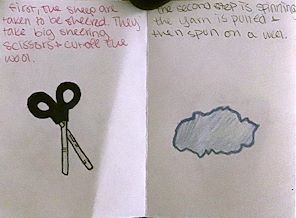 First, the sheep are
taken to be sheered. They
take big sheering
scissors + cut off the
wool.
The second step is spinning
the yarn is pulled +
then spun on a weel.